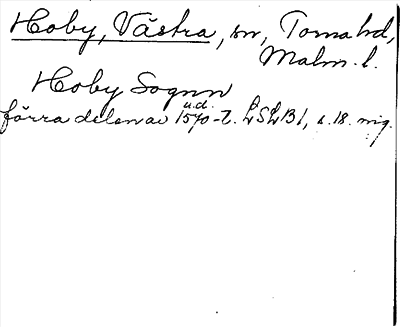 Hoby, Västra, sn, Torna hd,
Malm. l.
Hoby Sognn
u.d.
förra delen av 1570-t. LSLB1, s. 18. mig.